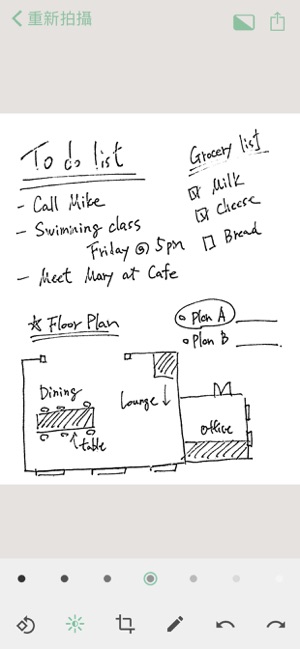 重新拍攝
To do list
- Call Mike
- Swimming class
Friday @ 5pm
- Meet Mary at Cafe
Grocery list
Milk
Cheese
Bread
☆ Floor Plan
Plan A
Plan B
Dining
table
Lounge
Office